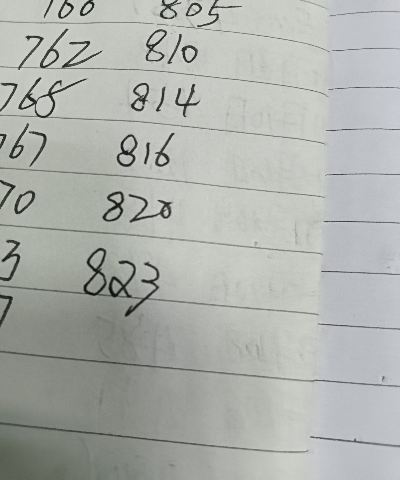 760 805
762 810
768 814
767 816
70 820
3 823
7